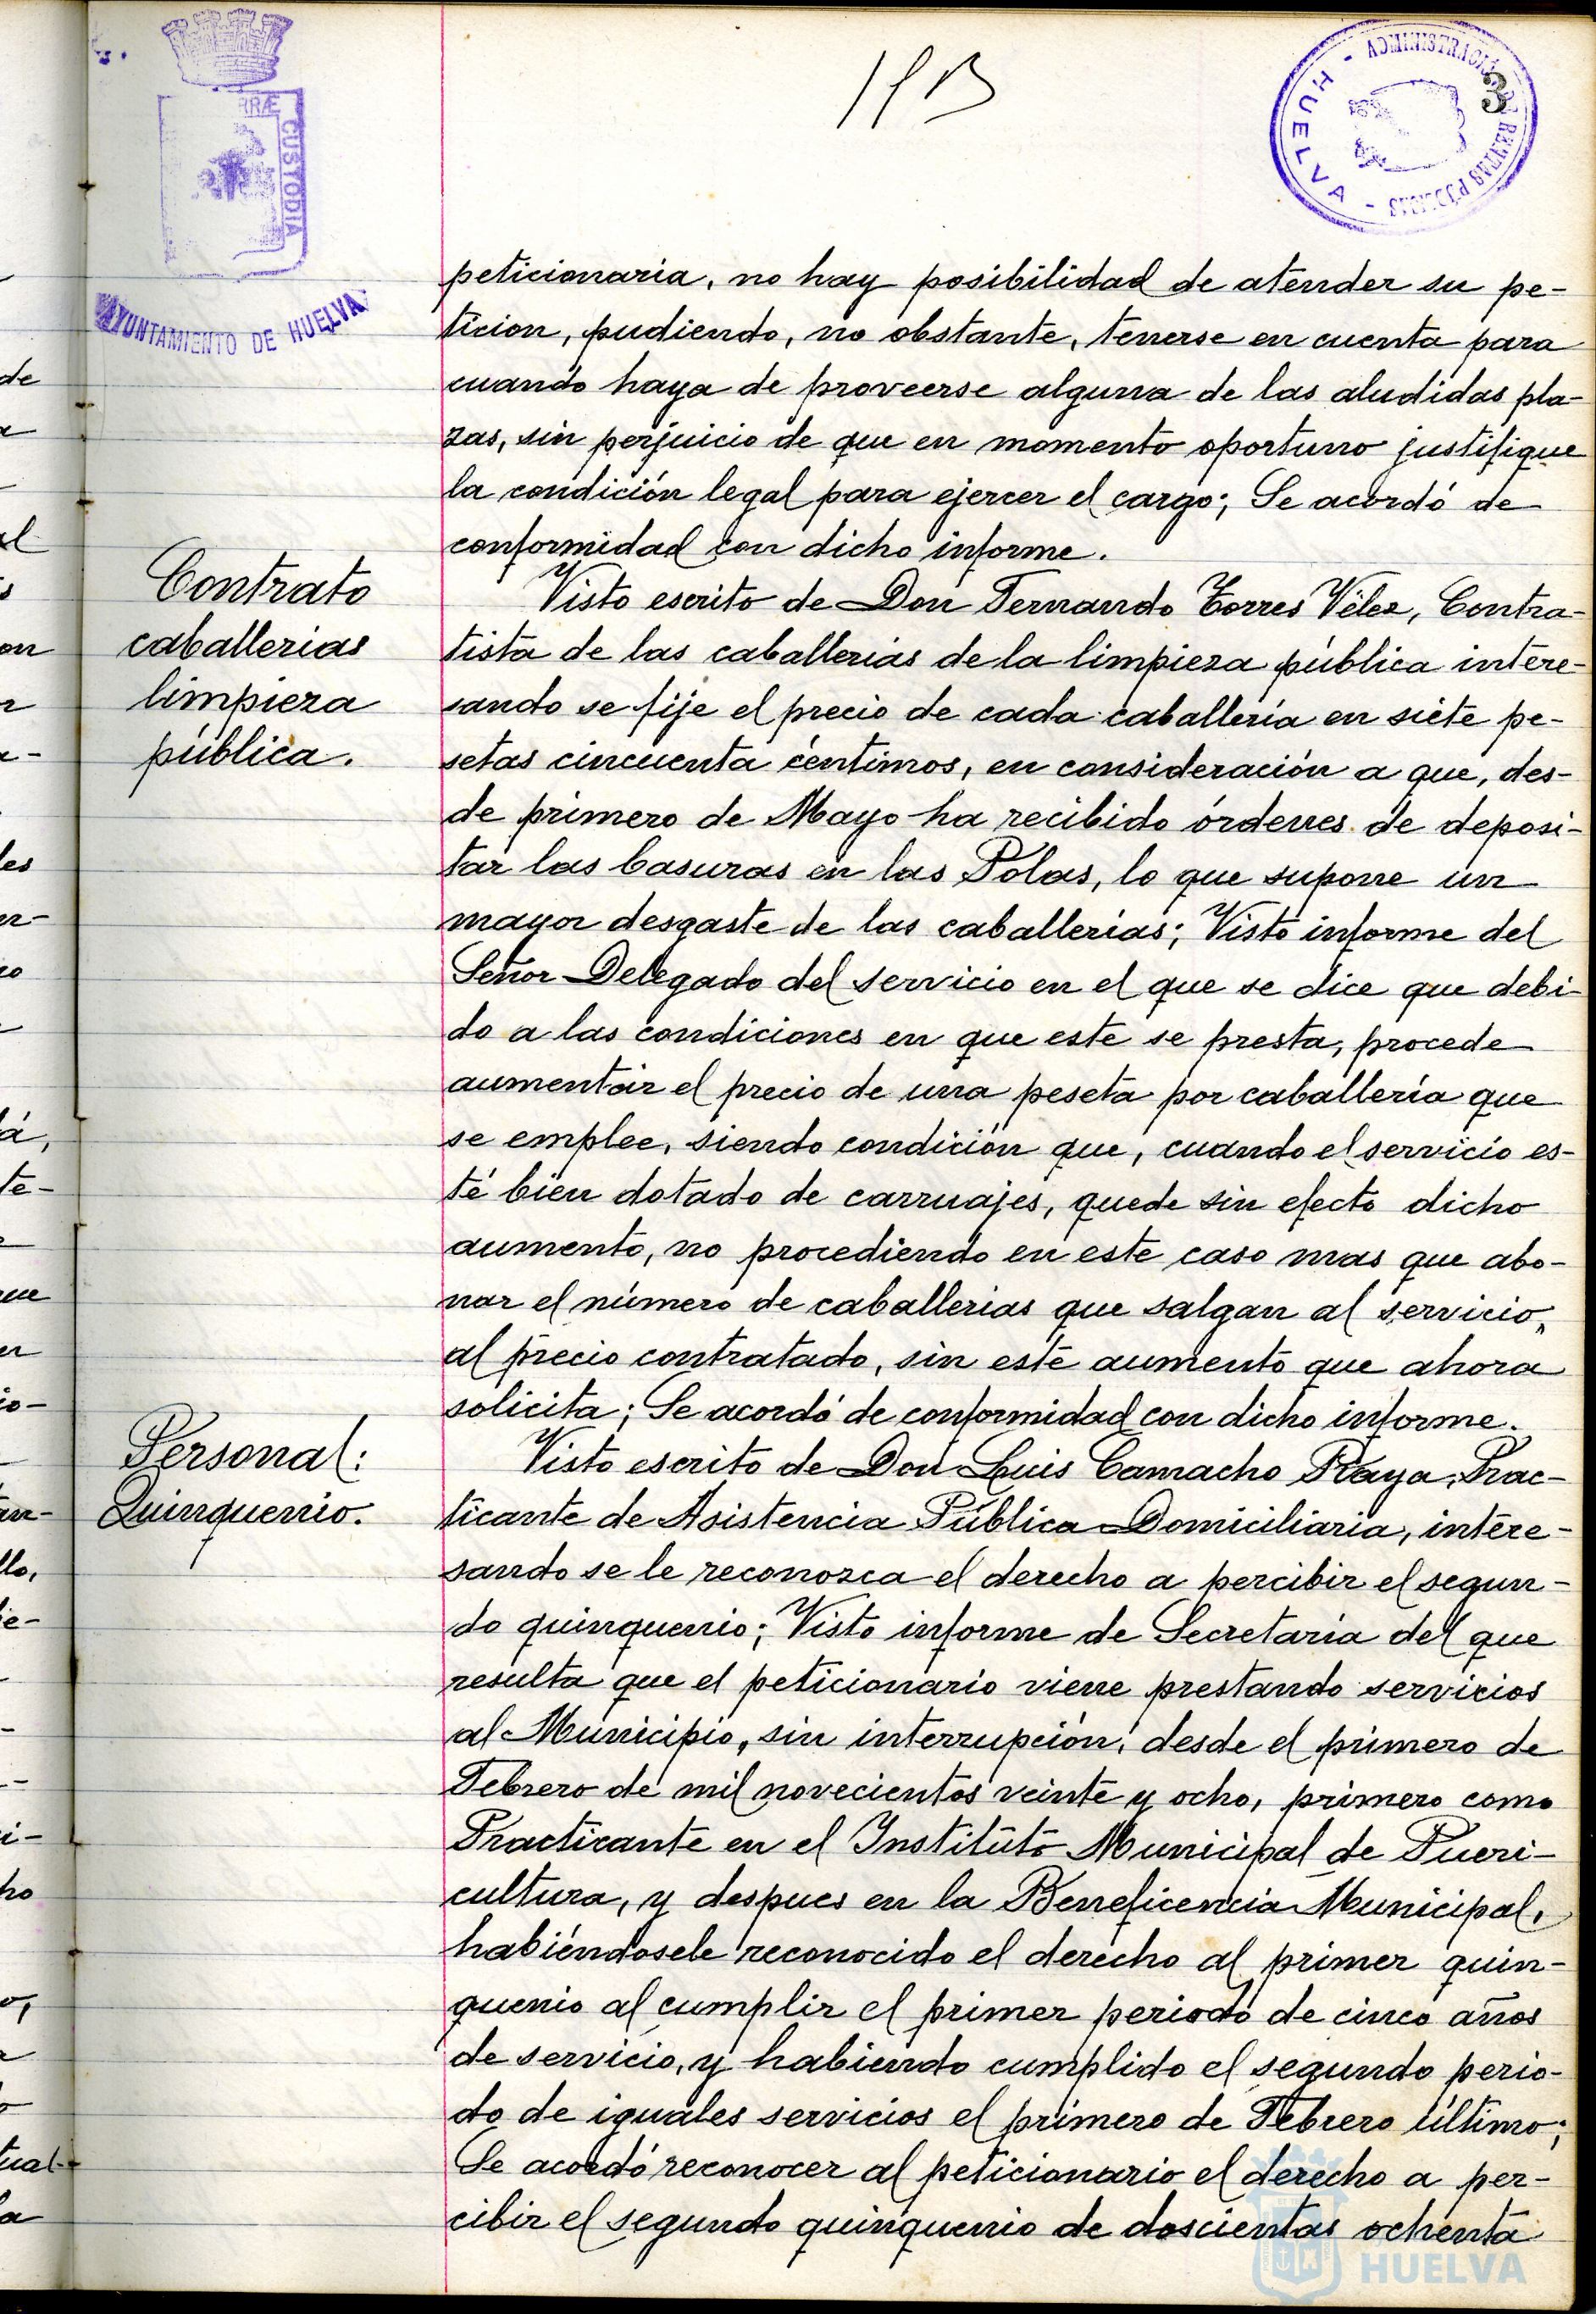 RRÆ CUSTODIA
AYUNTAMIENTO DE HUELVA
ADMINISTRACIÓN DE RENTAS PÚBLICAS
- HUELVA -
3
peticionaria, no hay posibilidad de atender su pe-
ticion, pudiendo, no obstante, tenerse en cuenta para
cuando haya de proveerse alguna de las aludidas pla-
zas, sin perjuicio de que en momento oportuno justifique
la condición legal para ejercer el cargo; Se acordó de
conformidad con dicho informe.
Contrato
caballerias
limpieza
pública.
Visto escrito de Don Fernando Torres Vélez, Contra-
tista de las caballerias de la limpieza pública intere-
sando se fije el precio de cada caballería en siete pe-
setas cincuenta céntimos, en consideración a que, des-
de primero de Mayo ha recibido órdenes de deposi-
tar las basuras en las Polas, lo que supone un
mayor desgaste de las caballerías; Visto informe del
Señor Delegado del servicio en el que se dice que debi-
do a las condiciones en que este se presta, procede
aumentar el precio de una peseta por caballería que
se emplee, siendo condición que, cuando el servicio es-
té bien dotado de carruajes, quede sin efecto dicho
aumento, no procediendo en este caso mas que abo-
nar el número de caballerias que salgan al servicio,
al precio contratado, sin este aumento que ahora
solicita; Se acordó de conformidad con dicho informe.
Personal:
Quinquenio.
Visto escrito de Don Luis Camacho Raya, Prac-
ticante de Asistencia Pública Domiciliaria, intere-
sando se le reconozca el derecho a percibir el segun-
do quinquenio; Visto informe de Secretaría del que
resulta que el peticionario viene prestando servicios
al Municipio, sin interrupción, desde el primero de
Febrero de mil novecientos veinte y ocho, primero como
Practicante en el Instituto Municipal de Pueri-
cultura, y despues en la Beneficencia Municipal,
habiéndosele reconocido el derecho al primer quin-
quenio al cumplir el primer periodo de cinco años
de servicio, y habiendo cumplido el segundo perio-
do de iguales servicios el primero de Febrero último;
Se acordó reconocer al peticionario el derecho a per-
cibir el segundo quinquenio de doscientas ochenta
HUELVA